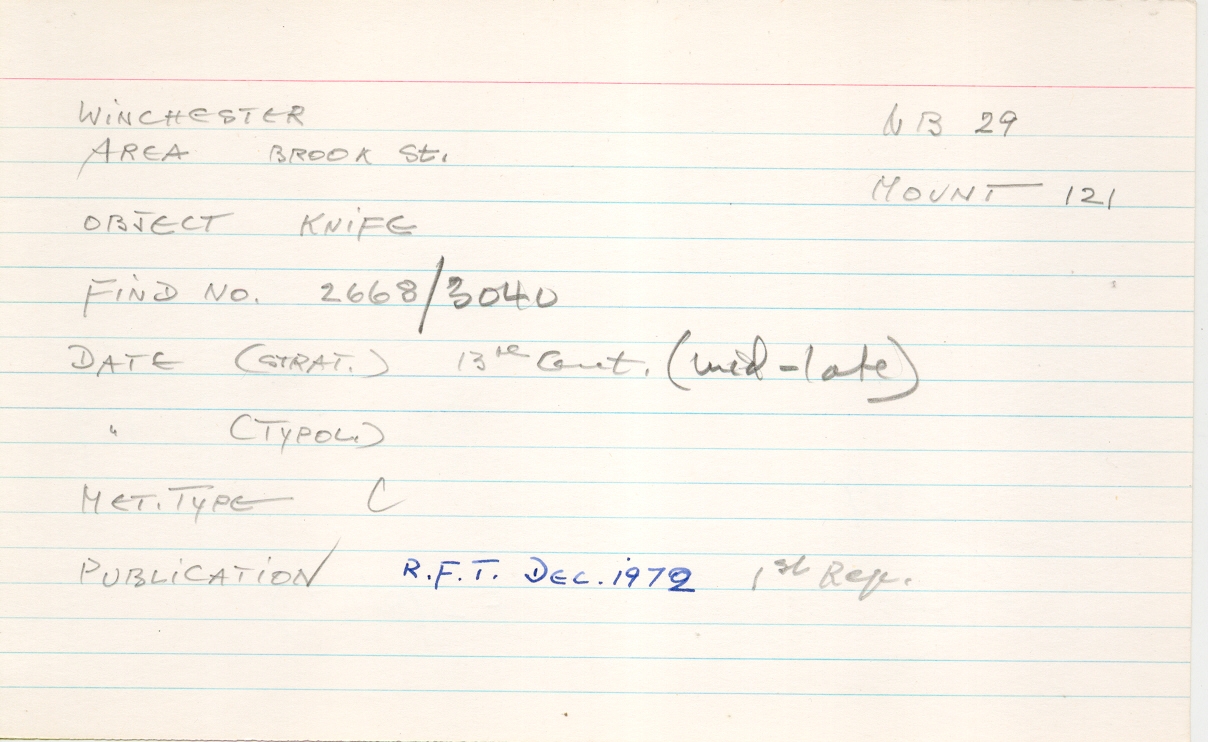 WINCHESTER
NB 29
AREA BROOK St.
MOUNT 121
OBJECT KNIFE
FIND NO. 2668/3040
DATE (STRAT.) 13th Cent. (mid-late)
" (TYPOL.)
MET. TYPE C
PUBLICATION R.F.T. DEC. 1972 1st Rep.